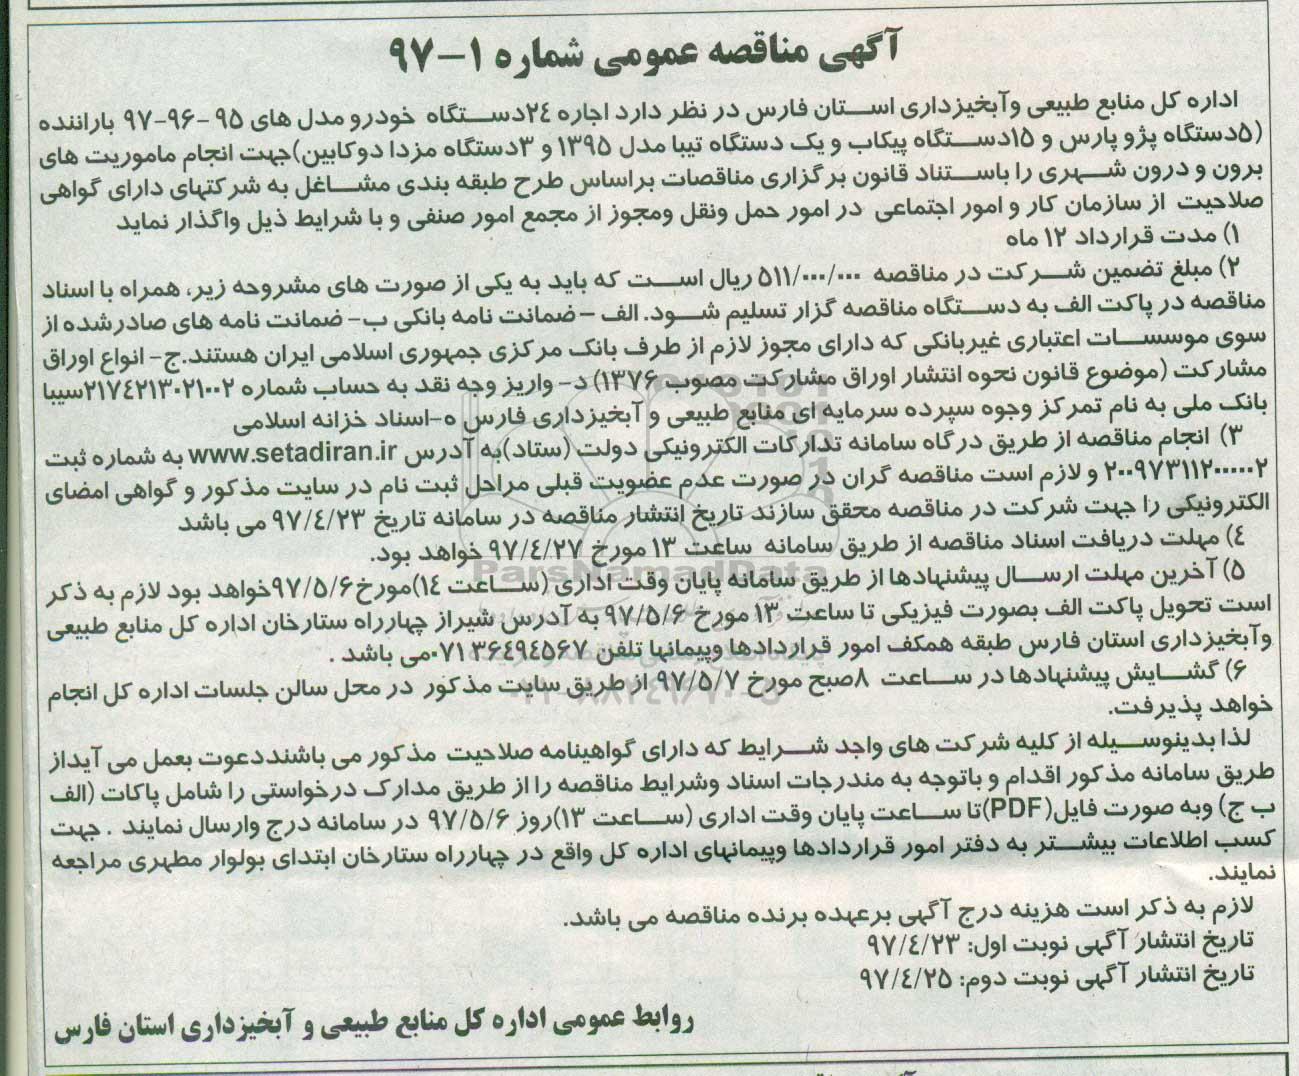 آگهی مناقصه عمومی شماره ۱-۹۷
اداره کل منابع طبیعی وآبخیزداری استان فارس در نظر دارد اجاره ۲۴دستگاه خودرو مدل های ۹۵ -۹۶ -۹۷ باراننده
(۵دستگاه پژو پارس و ۱۵دستگاه پیکاب و یک دستگاه تیبا مدل ۱۳۹۵ و ۳دستگاه مزدا دوکابین)جهت انجام ماموریت های
برون و درون شهری را باستناد قانون برگزاری مناقصات براساس طرح طبقه بندی مشاغل به شرکتهای دارای گواهی
صلاحیت از سازمان کار و امور اجتماعی در امور حمل ونقل ومجوز از مجمع امور صنفی و با شرایط ذیل واگذار نماید
۱) مدت قرارداد ۱۲ ماه
۲) مبلغ تضمین شرکت در مناقصه ۵۱۱/۰۰۰/۰۰۰ ریال است که باید به یکی از صورت های مشروحه زیر، همراه با اسناد
مناقصه در پاکت الف به دستگاه مناقصه گزار تسلیم شود. الف – ضمانت نامه بانکی ب- ضمانت نامه های صادرشده از
سوی موسسات اعتباری غیربانکی که دارای مجوز لازم از طرف بانک مرکزی جمهوری اسلامی ایران هستند.ج- انواع اوراق
مشارکت (موضوع قانون نحوه انتشار اوراق مشارکت مصوب ۱۳۷۶) د- واریز وجه نقد به حساب شماره ۲۱۷۴۲۱۳۰۲۱۰۰۲سیبا
بانک ملی به نام تمرکز وجوه سپرده سرمایه ای منابع طبیعی و آبخیزداری فارس ه-اسناد خزانه اسلامی
۳) انجام مناقصه از طریق درگاه سامانه تدارکات الکترونیکی دولت (ستاد)به آدرس www.setadiran.ir به شماره ثبت
۲۰۰۹۷۳۱۱۲۰۰۰۰۰۲ و لازم است مناقصه گران در صورت عدم عضویت قبلی مراحل ثبت نام در سایت مذکور و گواهی امضای
الکترونیکی را جهت شرکت در مناقصه محقق سازند تاریخ انتشار مناقصه در سامانه تاریخ ۹۷/۴/۲۳ می باشد
۴) مهلت دریافت اسناد مناقصه از طریق سامانه ساعت ۱۳ مورخ ۹۷/۴/۲۷ خواهد بود.
۵) آخرین مهلت ارسال پیشنهادها از طریق سامانه پایان وقت اداری (ساعت ۱۴)مورخ۹۷/۵/۶خواهد بود لازم به ذکر
است تحویل پاکت الف بصورت فیزیکی تا ساعت ۱۳ مورخ ۹۷/۵/۶ به آدرس شیراز چهارراه ستارخان اداره کل منابع طبیعی
وآبخیزداری استان فارس طبقه همکف امور قراردادها وپیمانها تلفن ۰۷۱۳۶۴۹۴۵۶۷می باشد .
۶) گشایش پیشنهادها در ساعت ۸صبح مورخ ۹۷/۵/۷ از طریق سایت مذکور در محل سالن جلسات اداره کل انجام
خواهد پذیرفت.
لذا بدینوسیله از کلیه شرکت های واجد شرایط که دارای گواهینامه صلاحیت مذکور می باشنددعوت بعمل می آیداز
طریق سامانه مذکور اقدام و باتوجه به مندرجات اسناد وشرایط مناقصه را از طریق مدارک درخواستی را شامل پاکات (الف
ب ج) وبه صورت فایل(PDF)تا ساعت پایان وقت اداری (ساعت ۱۳)روز ۹۷/۵/۶ در سامانه درج وارسال نمایند . جهت
کسب اطلاعات بیشتر به دفتر امور قراردادها وپیمانهای اداره کل واقع در چهارراه ستارخان ابتدای بولوار مطهری مراجعه
نمایند.
لازم به ذکر است هزینه درج آگهی برعهده برنده مناقصه می باشد.
تاریخ انتشار آگهی نوبت اول: ۹۷/۴/۲۳
تاریخ انتشار آگهی نوبت دوم: ۹۷/۴/۲۵
روابط عمومی اداره کل منابع طبیعی و آبخیزداری استان فارس
ParsNamadData